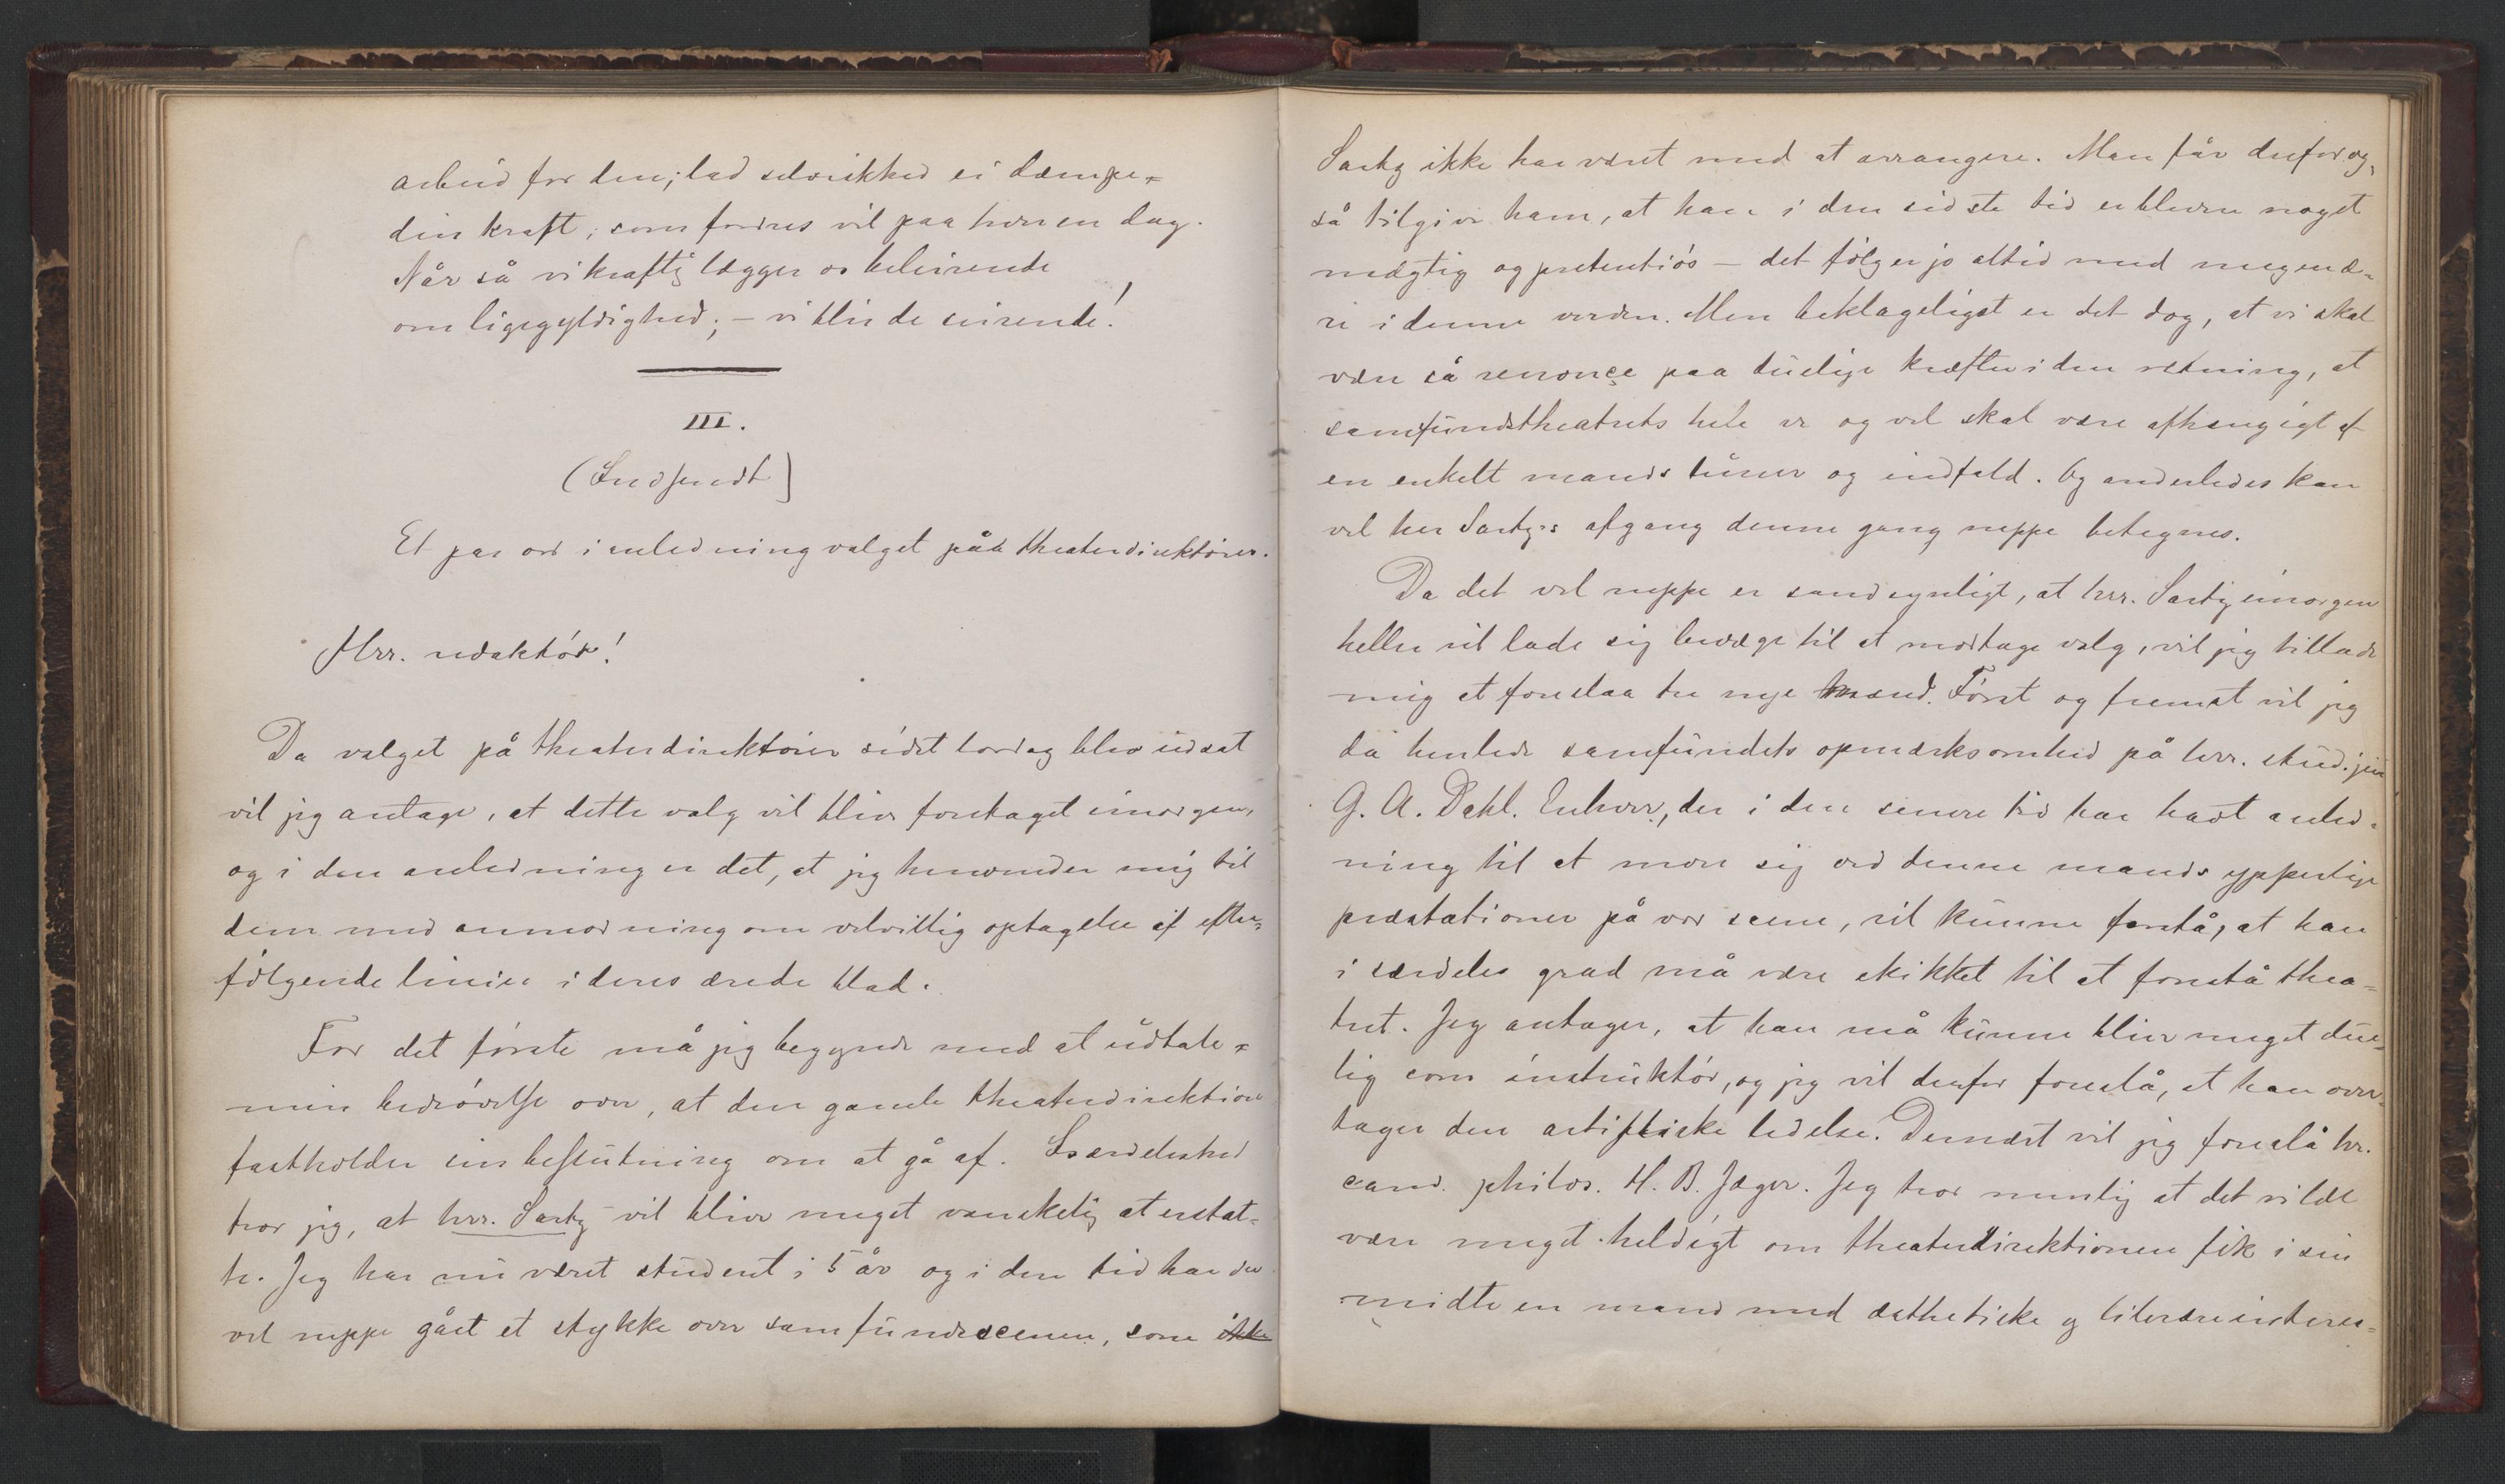 arbeid for den; lad selvsikkhed ei dæmpe=
din kraft, som fordres vil paa hver en dag.
Når så vi kraftig lægger os beleirende
om ligegyldighed; – vi blir de seirende!
III.
(Indsendt)
Et par ord i anledning valget påa theaterdirektører.
Hrr. redaktør!
Da valget på theaterdirektører sidst lørdag blev udsat
vil jeg antage, at dette valg vil blive foretaget imorgen,
og i den anledning er det, at jeg henvender mig til
dem med anmodning om velvillig optagelse af efter=
følgende linier i deres ærede blad.
For det første må jeg begynde med at udtale=
min bedrøvelse over, at den gamle theaterdirektion
fastholder sin beslutning om at gå af. Særdeleshed
tror jeg, at hrr. Sartz vil blive meget vanskelig at erstat=
te. Jeg har nu været student i 5 år og i den tid har der
vel neppe gået et stykke over samfundsscenen, som ikke
Sartz ikke har været med at arrangere. Man får derfor og=
så tilgive ham, at han i den sidste tid er bleven noget
mægtig og pretentiøs – det følger jo altid med megen æ=
re i denne verden. Men beklageligst er det dog, at vi skal
være så renonce paa duelige kræfter i den retning, at
samfundstheatrets hele ve og vel skal være afhængigt af
en enkelt mands luner og indfald. Og anderledes kan
vel herr Sartz's afgang denne gang neppe betegnes.
Da det vel neppe er sandsynligt, at hrr. Sartz imorgen
heller vil lade sig bevæge til at modtage valg, vil jeg tillade
mig at foreslaa tre nye mænd. Først og fremst vil jeg
da henlede samfundets opmærksomhed på hrr. stud. jur
G. A. Dahl. Enhver, der i den senere tid har havt anled=
ning til at more sig ved denne mands ypperlige
præstationer på vor scene, vil kunne forstå, at han
i særdeles grad må være skikket til at forestå thea=
tret. Jeg antager, at han må kunne blive meget due=
lig som instruktør, og jeg vil derfor foreslå, at han over=
tager den artistiske ledelse. Dernæst vil jeg foreslå hr.
cand. philos. H. B. Jæger. Jeg tror nemlig at det vilde
være meget heldigt om theaterdirektionen fik i sin
midte en mand med æsthetiske og literære interes=